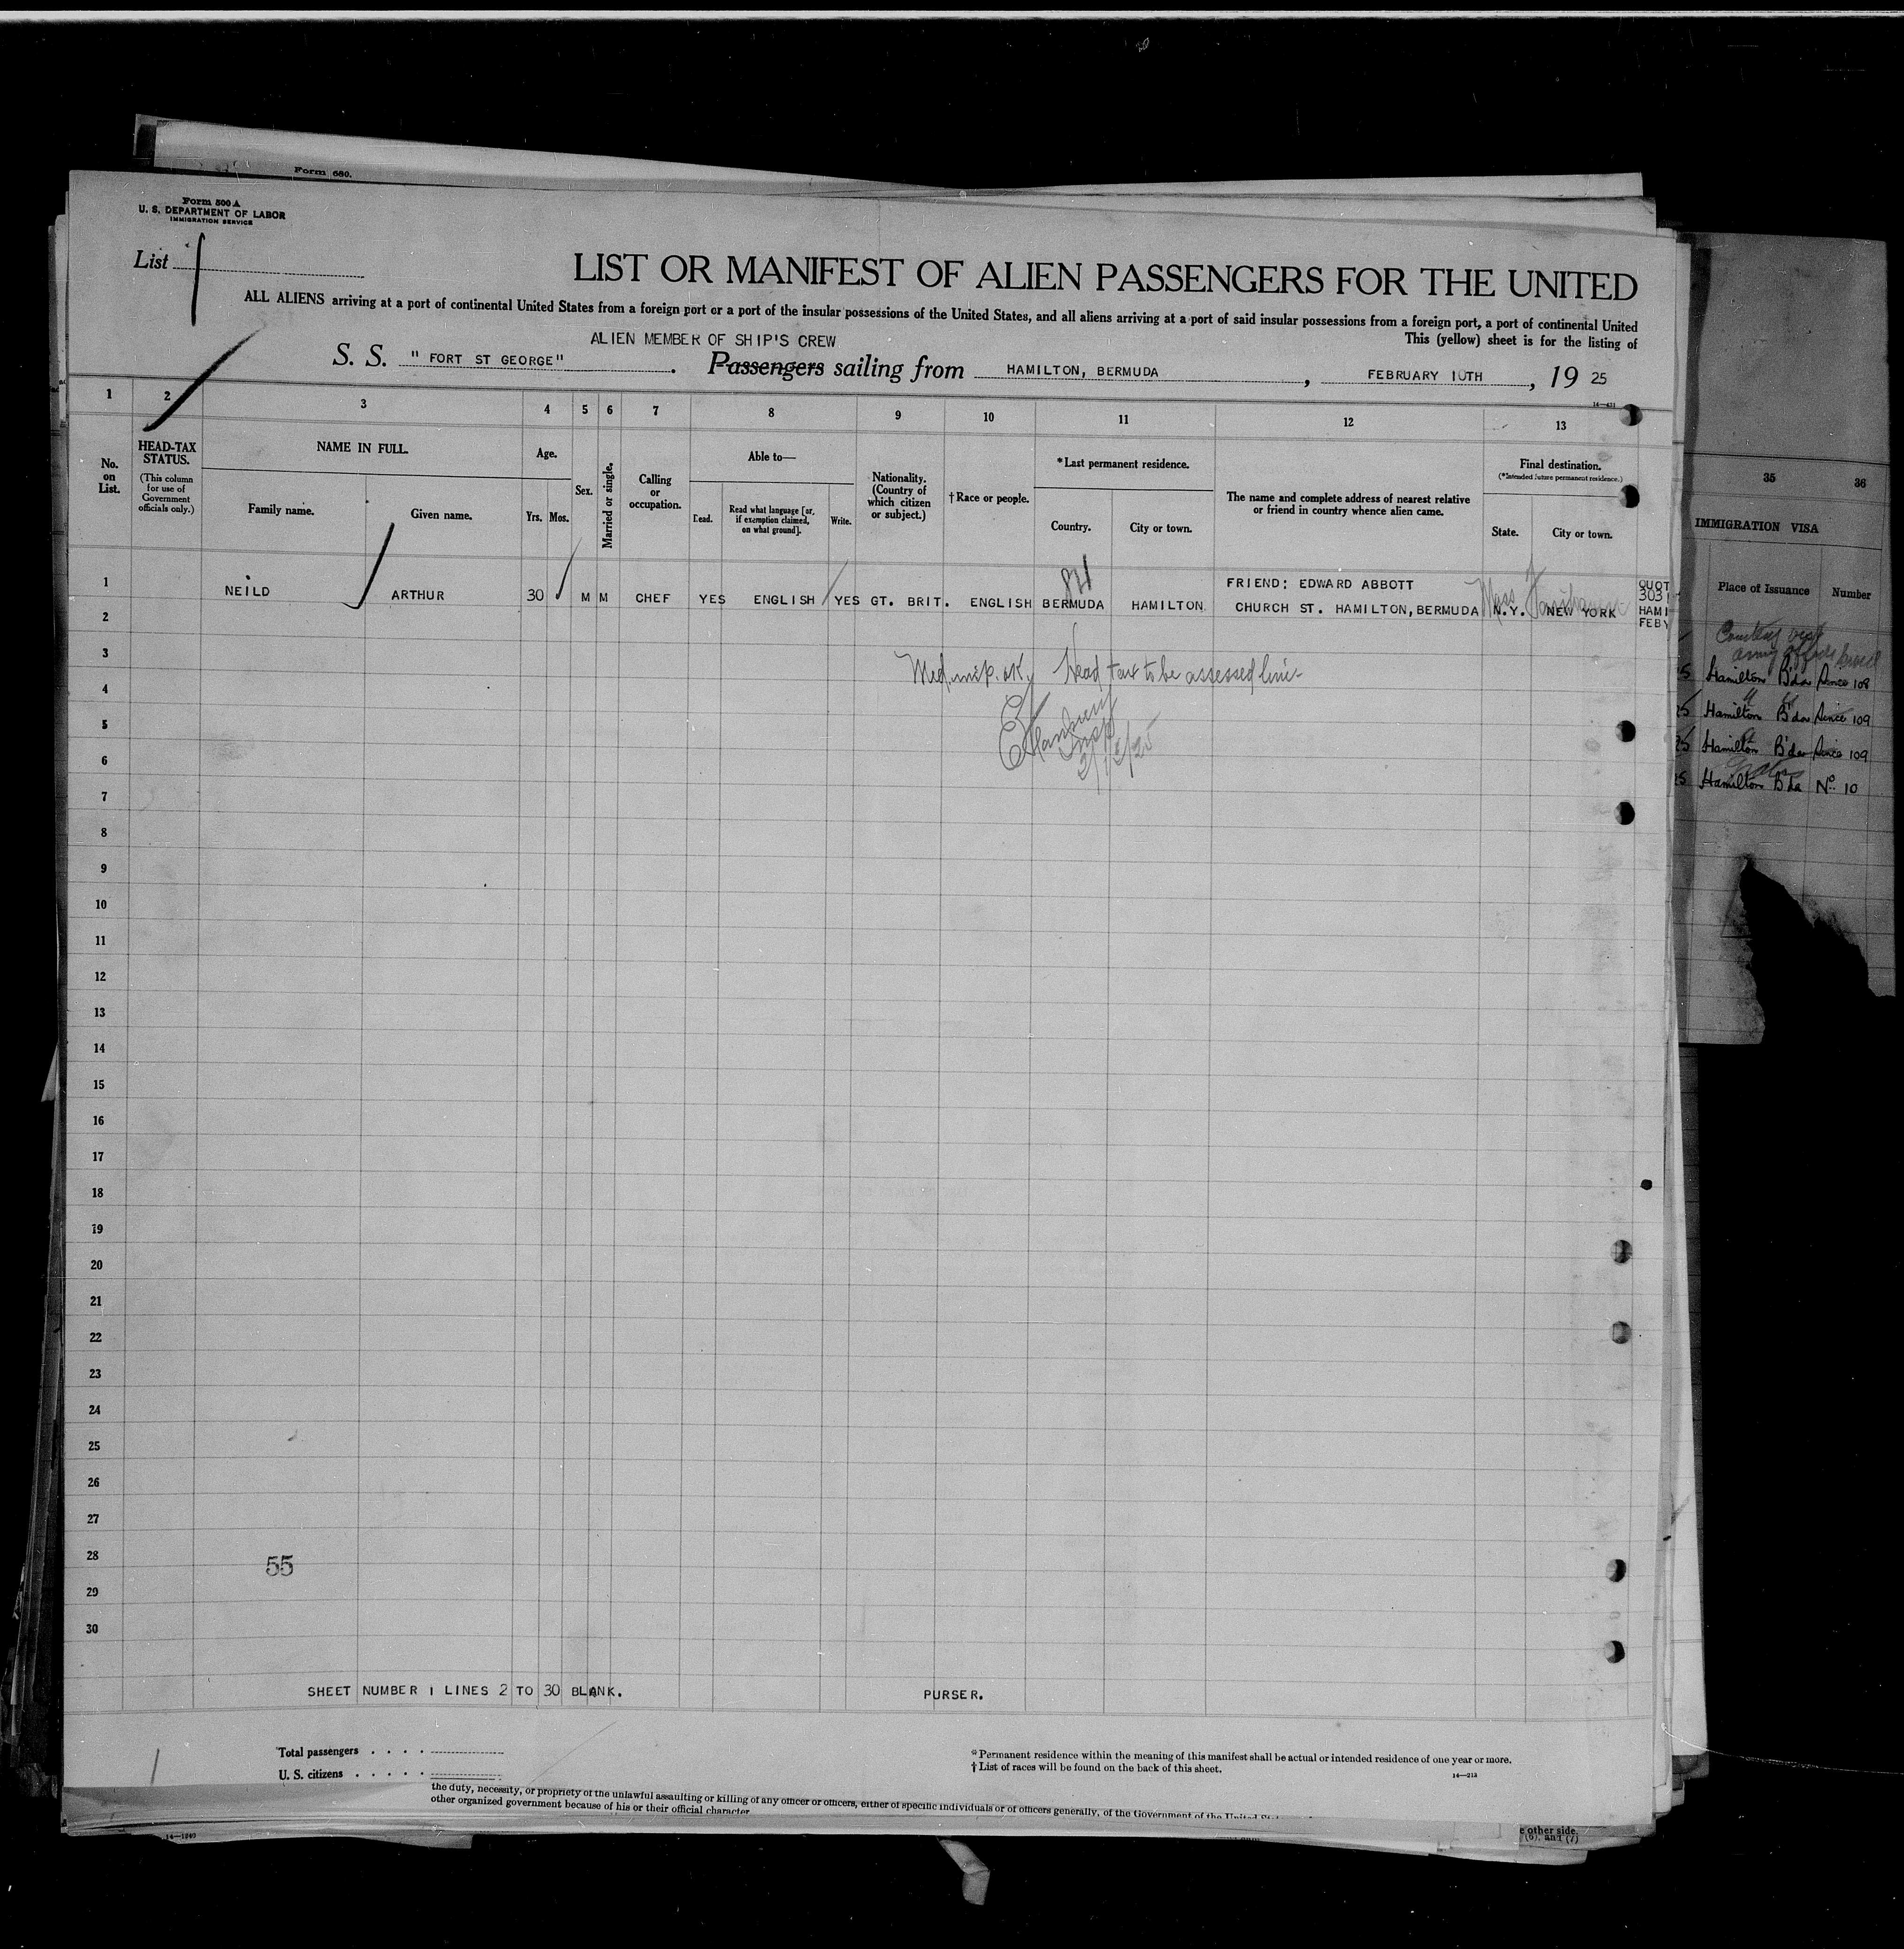 Form 680.
Form 500 A
U. S. DEPARTMENT OF LABOR
IMMIGRATION SERVICE
List 1
LIST OR MANIFEST OF ALIEN PASSENGERS FOR THE UNITED
ALL ALIENS arriving at a port of continental United States from a foreign port or a port of the insular possessions of the United States, and all aliens arriving at a port of said insular possessions from a foreign port, a port of continental United
This (yellow) sheet is for the listing of
ALIEN MEMBER OF SHIP'S CREW
S. S. " FORT ST GEORGE" . Passengers sailing from HAMILTON, BERMUDA , FEBRUARY 10TH , 19 25
14—431
1 2 3 4 5 6 7 8 9 10 11 12 13
No. on List.
HEAD-TAX STATUS.
(This column for use of Government officials only.)
NAME IN FULL.
Family name. Given name.
Age.
Yrs. Mos.
Sex.
Married or single.
Calling or occupation.
Able to—
Read. Read what language [or, if exemption claimed, on what ground]. Write.
Nationality. (Country of which citizen or subject.)
† Race or people.
*Last permanent residence.
Country. City or town.
The name and complete address of nearest relative or friend in country whence alien came.
Final destination.
(*Intended future permanent residence.)
State. City or town.
35 36
IMMIGRATION VISA
Place of Issuance Number
1 NEILD ARTHUR 30 M M CHEF YES ENGLISH YES GT. BRIT. ENGLISH BERMUDA HAMILTON
FRIEND: EDWARD ABBOTT
CHURCH ST. HAMILTON, BERMUDA N.Y. NEW YORK
Mass
QUOT
303
HAMI
FEBY
Med. insp. OK. head tax to be assessed line
Insp
2/12/25
Hamilton B'da 108
Hamilton B'da 109
Hamilton B'da 109
Hamilton B'da No. 10
2
3
4
5
6
7
8
9
10
11
12
13
14
15
16
17
18
19
20
21
22
23
24
25
26
27
28
55
29
30
SHEET NUMBER 1 LINES 2 TO 30 BLANK. PURSER.
Total passengers . . . .
U. S. citizens . . . . .
* Permanent residence within the meaning of this manifest shall be actual or intended residence of one year or more.
† List of races will be found on the back of this sheet.
14—213
the duty, necessity, or propriety of the unlawful assaulting or killing of any officer or officers, either of specific individuals or of officers generally, of the Government of the United
other organized government because of his or their official character
14—1940
e other side.
(6), and (7)